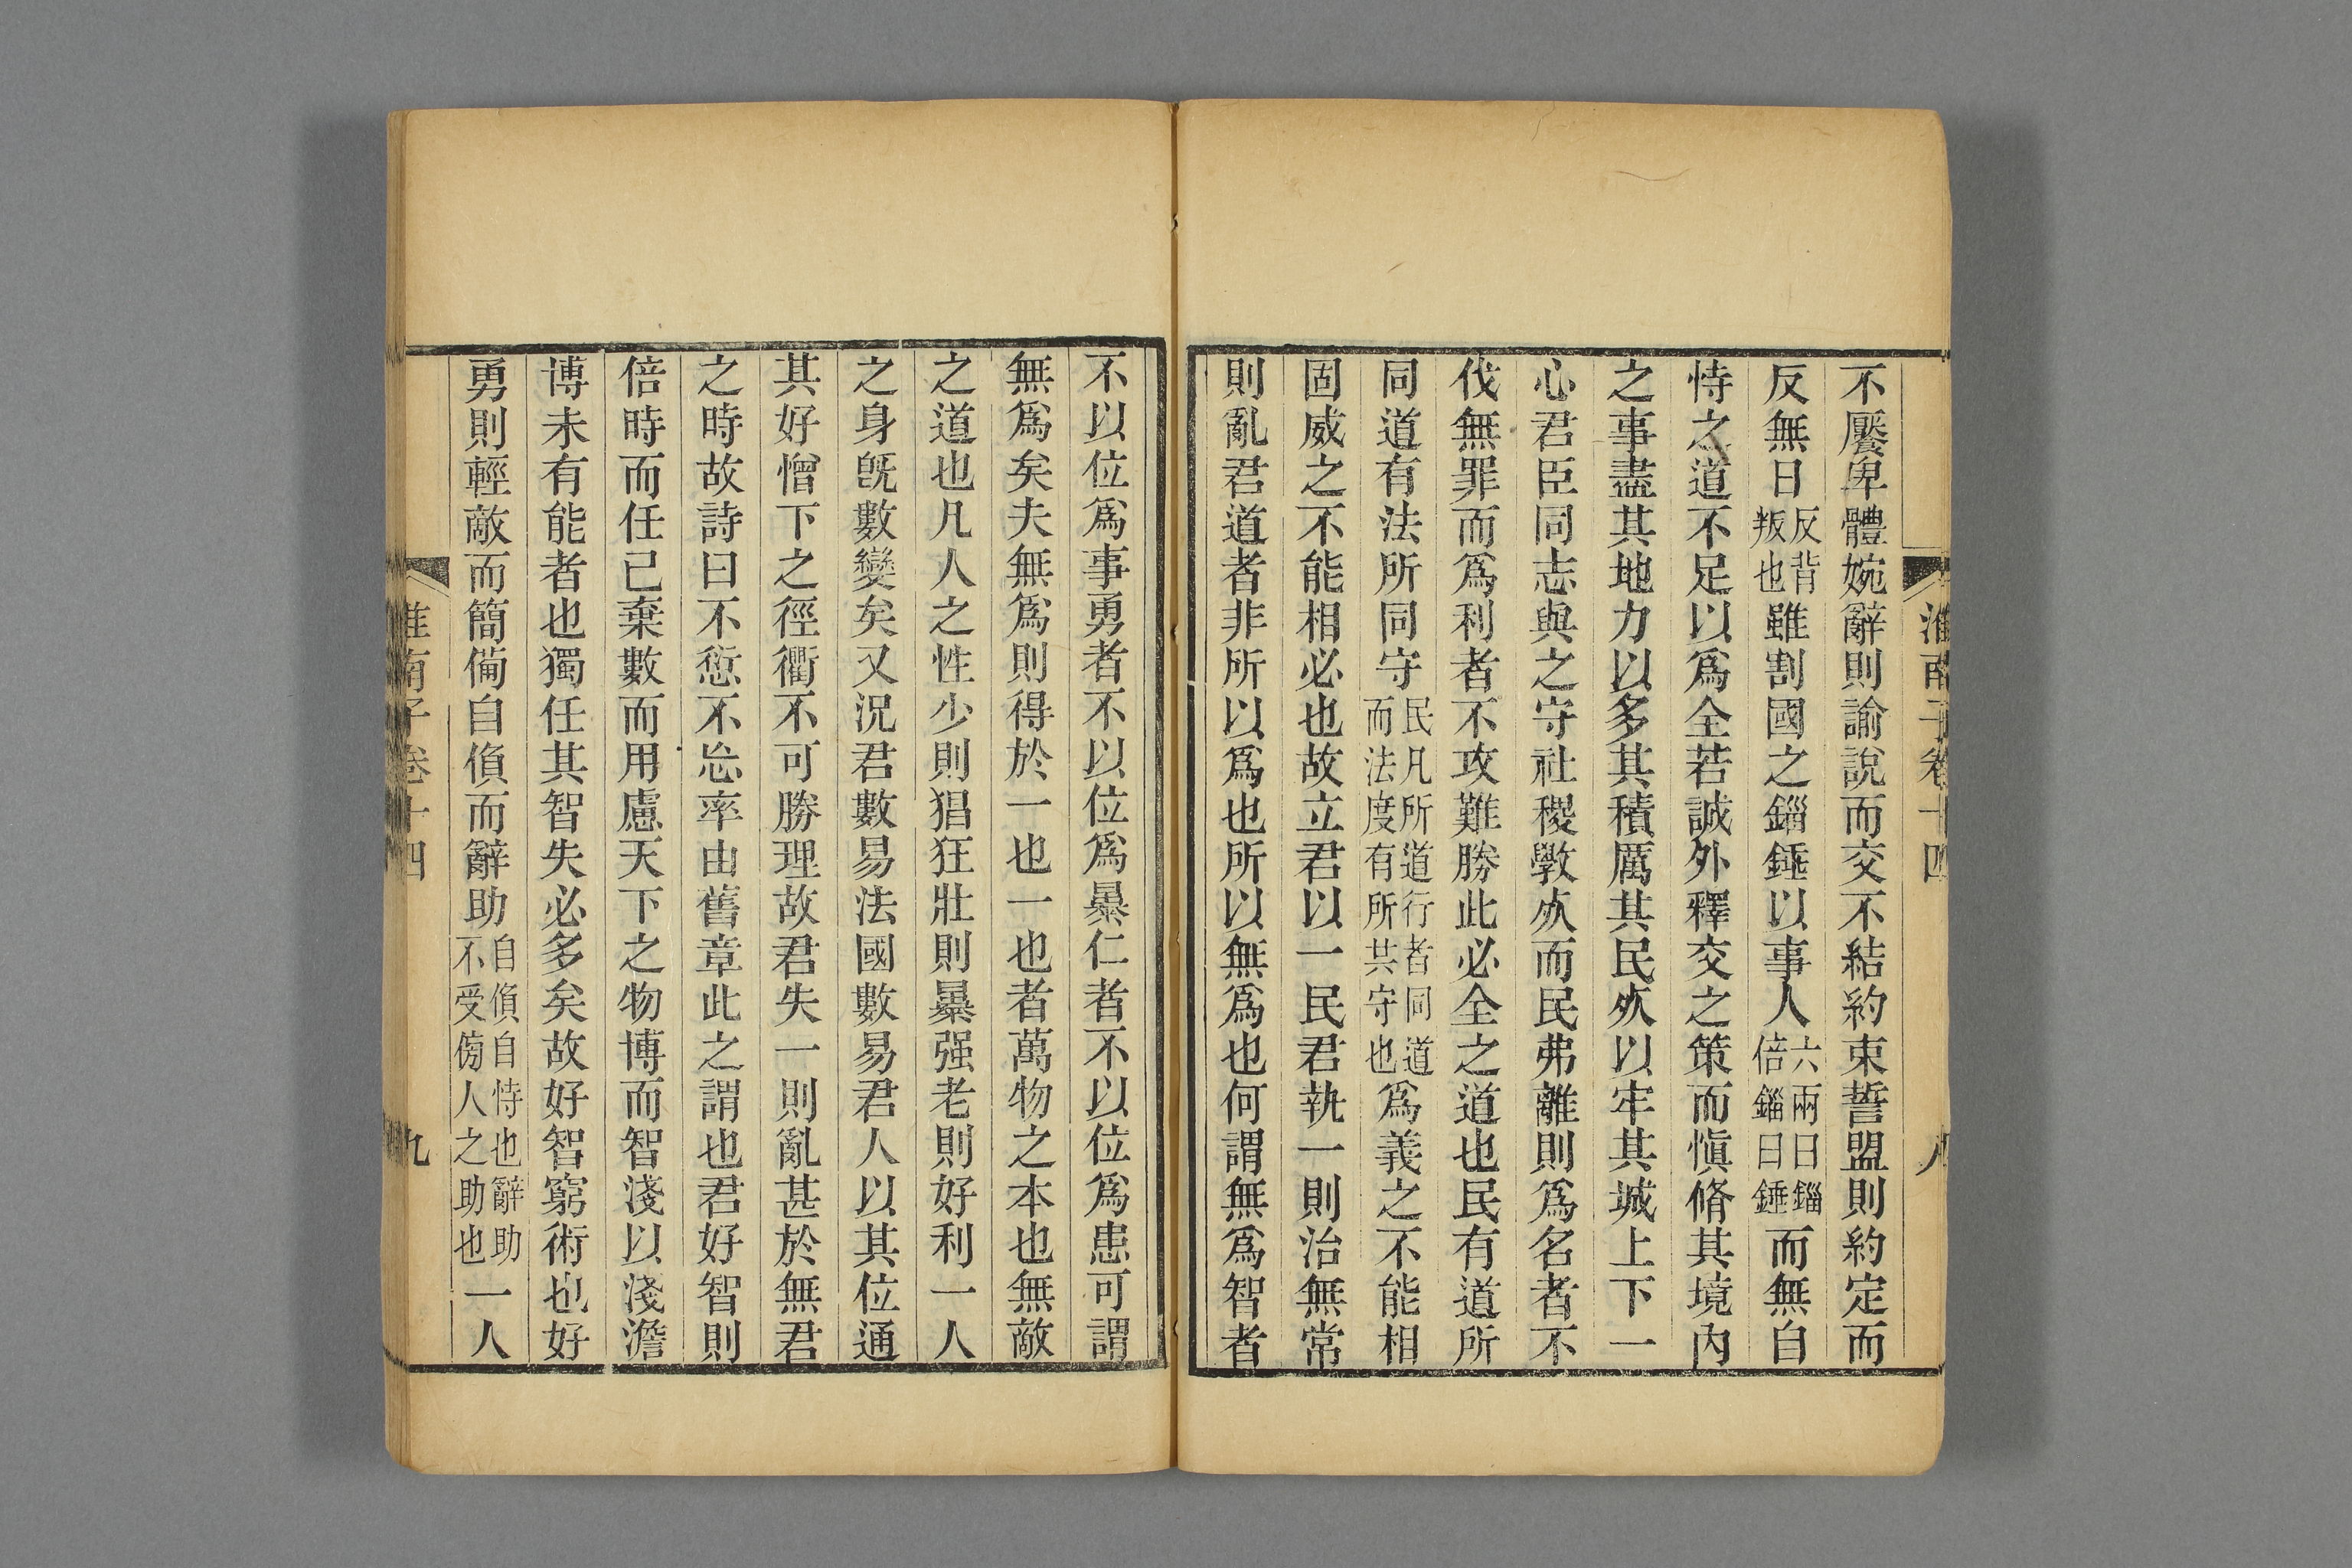 淮南子卷十四
八
不饜卑體婉辭則諭說而交不結約束誓盟則約定而
反無日反背叛也雖割國之錙錘以事人六兩曰錙倍錙曰錘而無自
恃之道不足以爲全若誠外釋交之策而愼脩其境內
之事盡其地力以多其積厲其民㱾以牢其城上下一
心君臣同志與之守社稷斆㱾而民弗離則爲名者不
伐無罪而爲利者不攻難勝此必全之道也民有道所
同道有法所同守民凡所道行者同道而法度有所共守也爲義之不能相
固威之不能相必也故立君以一民君執一則治無常
則亂君道者非所以爲也所以無爲也何謂無爲智者
不以位爲事勇者不以位爲暴仁者不以位爲患可謂
無爲矣夫無爲則得於一也一也者萬物之本也無敵
之道也凡人之性少則猖狂壯則暴强老則好利一人
之身旣數變矣又況君數易法國數易君人以其位通
其好憎下之徑衢不可勝理故君失一則亂甚於無君
之時故詩曰不愆不忘率由舊章此之謂也君好智則
倍時而任己棄數而用慮天下之物博而智淺以淺澹
博未有能者也獨任其智失必多矣故好智窮術也好
勇則輕敵而簡備自偩而辭助自偩自恃也辭助不受傍人之助也一人
淮南子卷十四
九